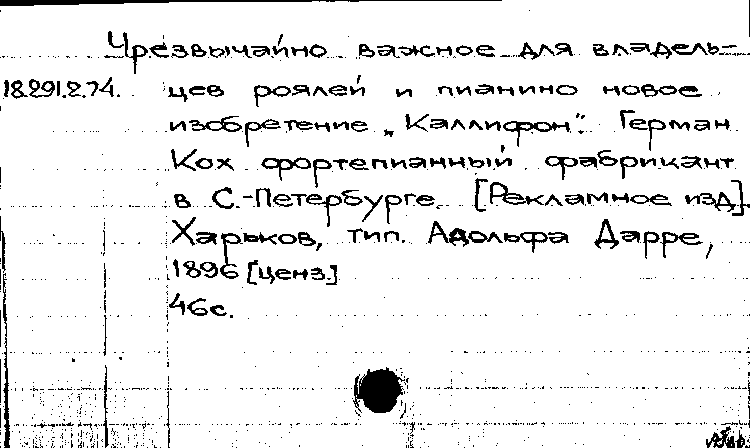 Чрезвычайно важное для владель-
18.291.2.74. цев роялей и пианино новое
изобретение „Каллифон". Герман
Кох фортепианный фабрикант
в С.-Петербурге. [Рекламное изд].
Харьков, тип. Адольфа Дарре,
1896 [ценз.]
46с.